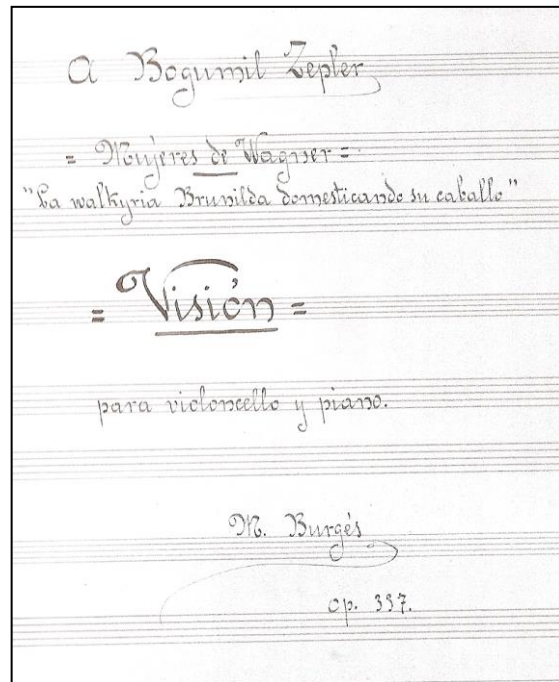 A Bogumil Zepler
= Mujeres de Wagner =
"La walkyria Brunilda domesticando su caballo"
= Visión =
para violoncello y piano.
M. Burgés
op. 337.